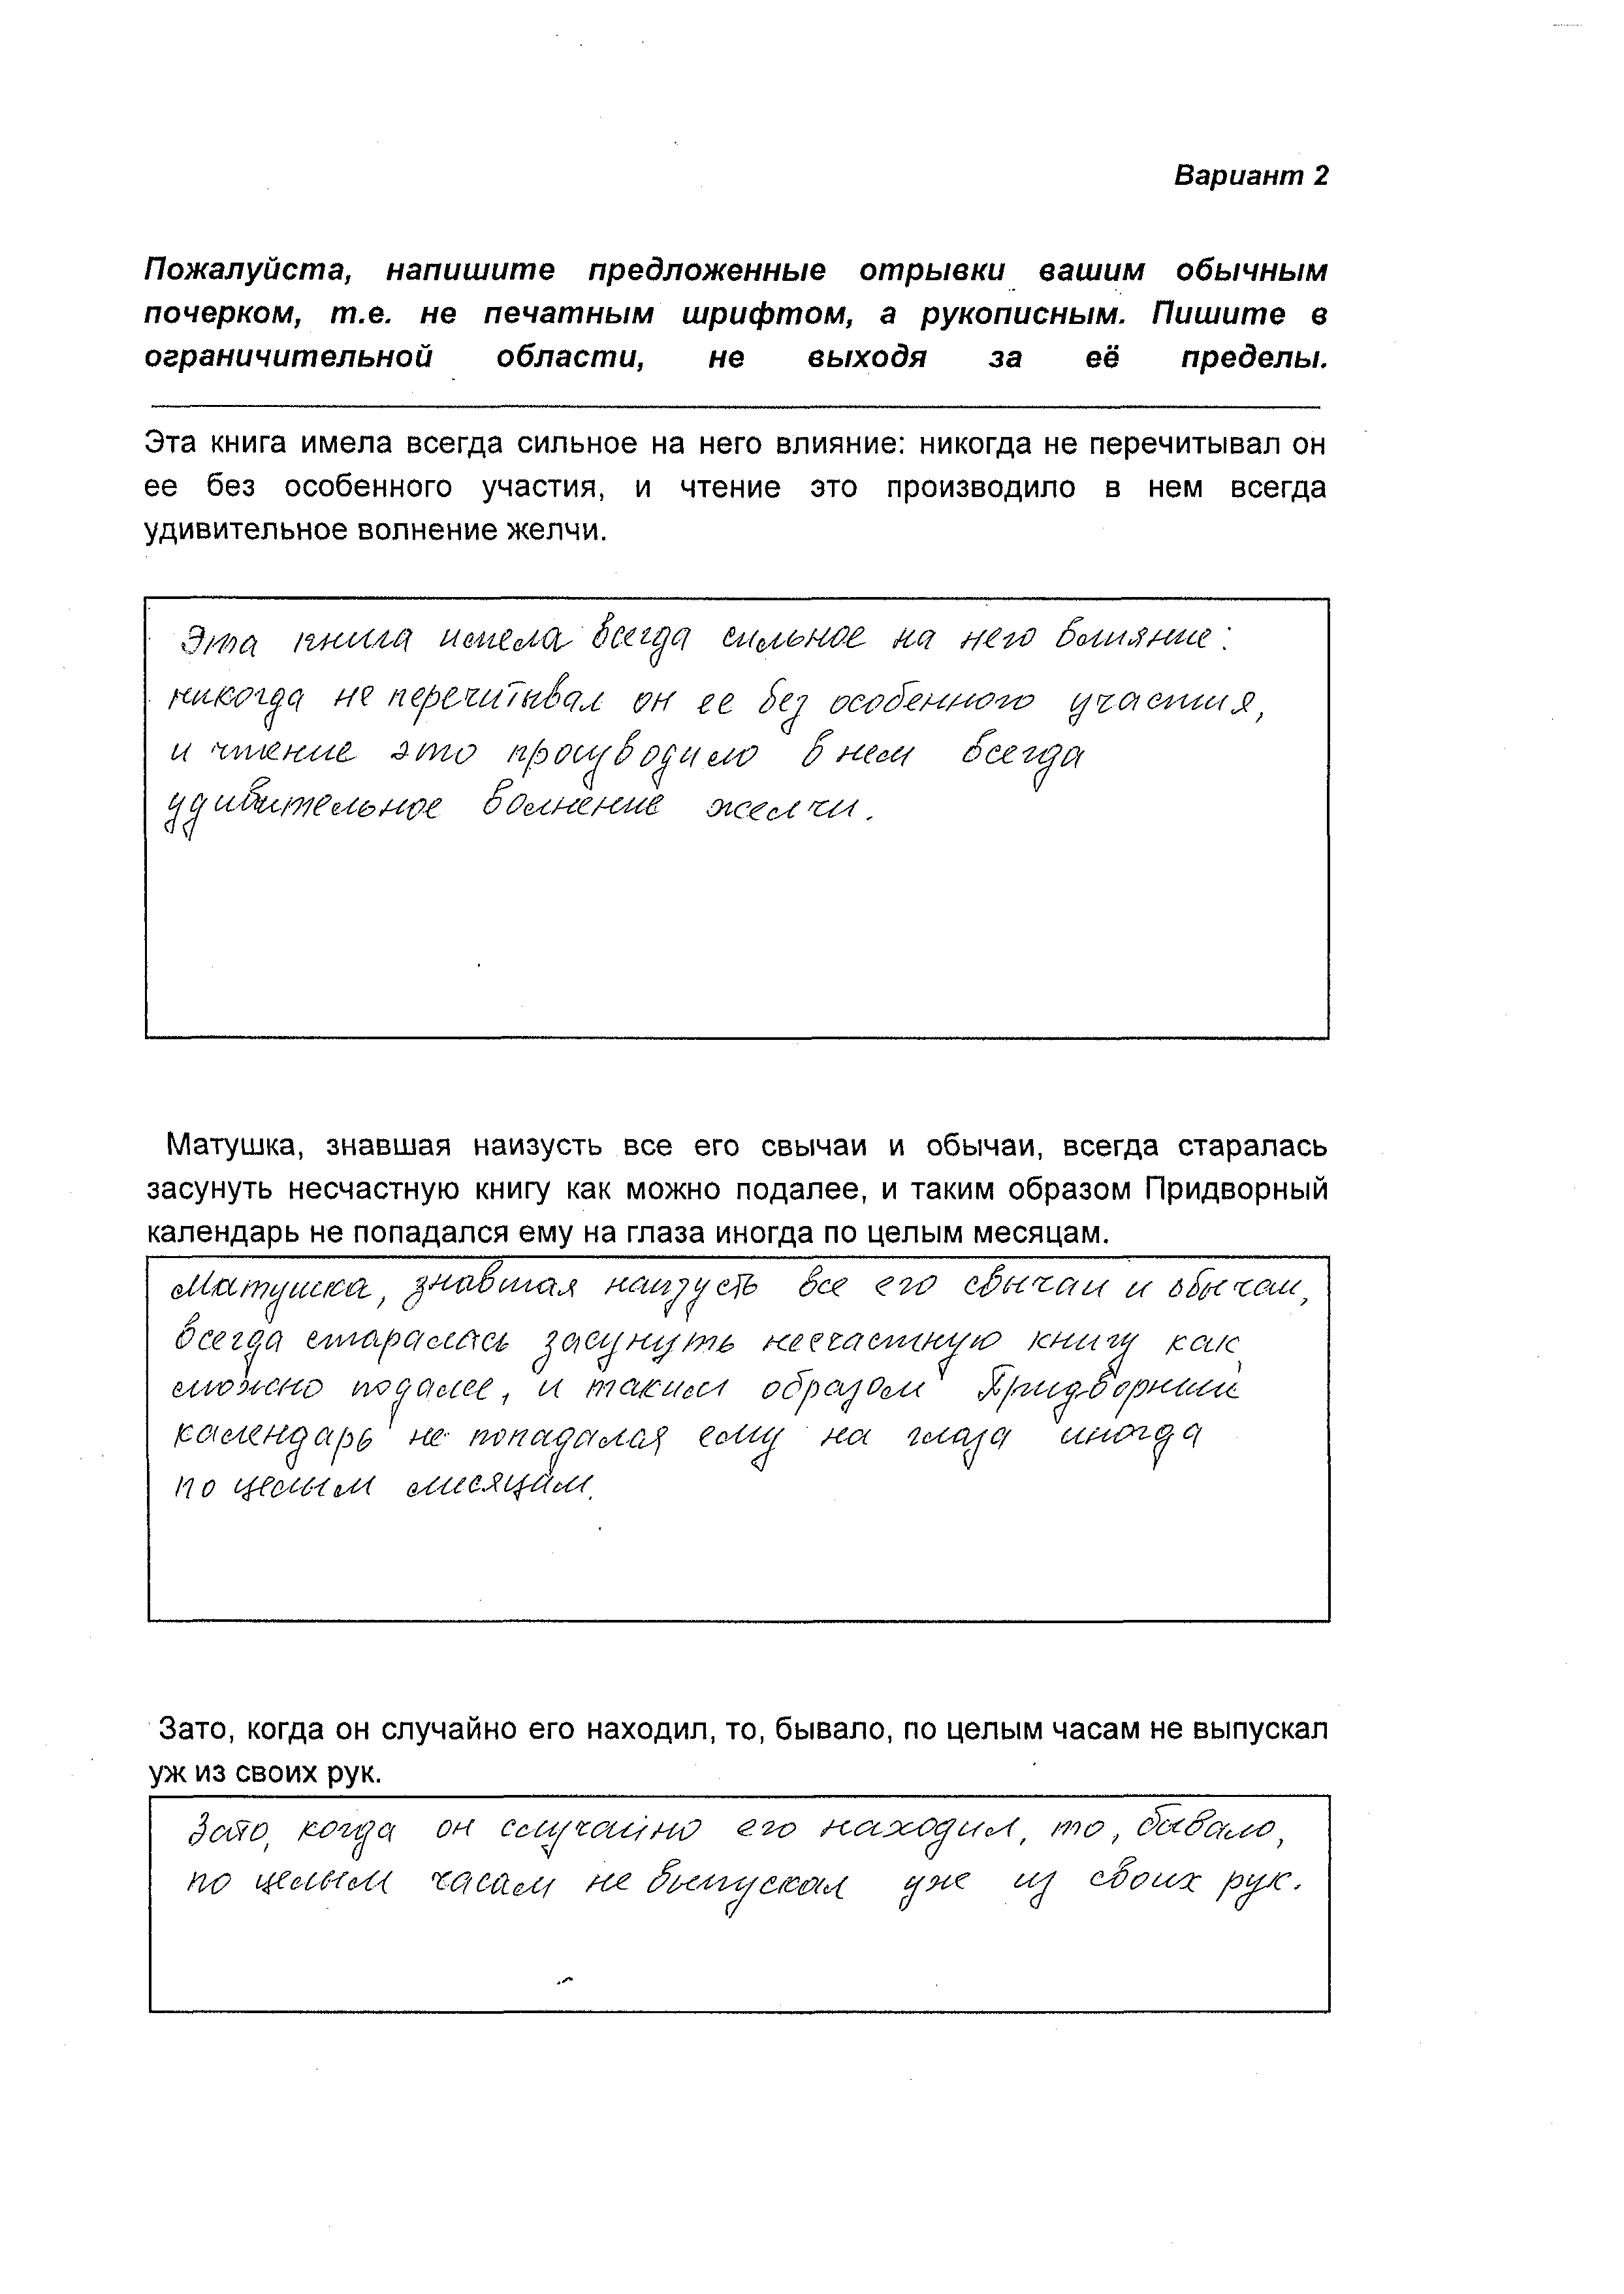 Вариант 2
Пожалуйста, напишите предложенные отрывки вашим обычным
почерком, т.е. не печатным шрифтом, а рукописным. Пишите в
ограничительной области, не выходя за её пределы.
Эта книга имела всегда сильное на него влияние: никогда не перечитывал он
ее без особенного участия, и чтение это производило в нем всегда
удивительное волнение желчи.
Эта книга имела всегда сильное на него влияние:
никогда не перечитывал он ее без особенного участия,
и чтение это производило в нем всегда
удивительное волнение желчи.
Матушка, знавшая наизусть все его свычаи и обычаи, всегда старалась
засунуть несчастную книгу как можно подалее, и таким образом Придворный
календарь не попадался ему на глаза иногда по целым месяцам.
Матушка, знавшая наизусть все его свычаи и обычаи,
всегда старалась засунуть несчастную книгу как
можно подалее, и таким образом Придворный
календарь не попадался ему на глаза иногда
по целым месяцам.
Зато, когда он случайно его находил, то, бывало, по целым часам не выпускал
уж из своих рук.
Зато, когда он случайно его находил, то, бывало,
по целым часам не выпускал уже из своих рук.